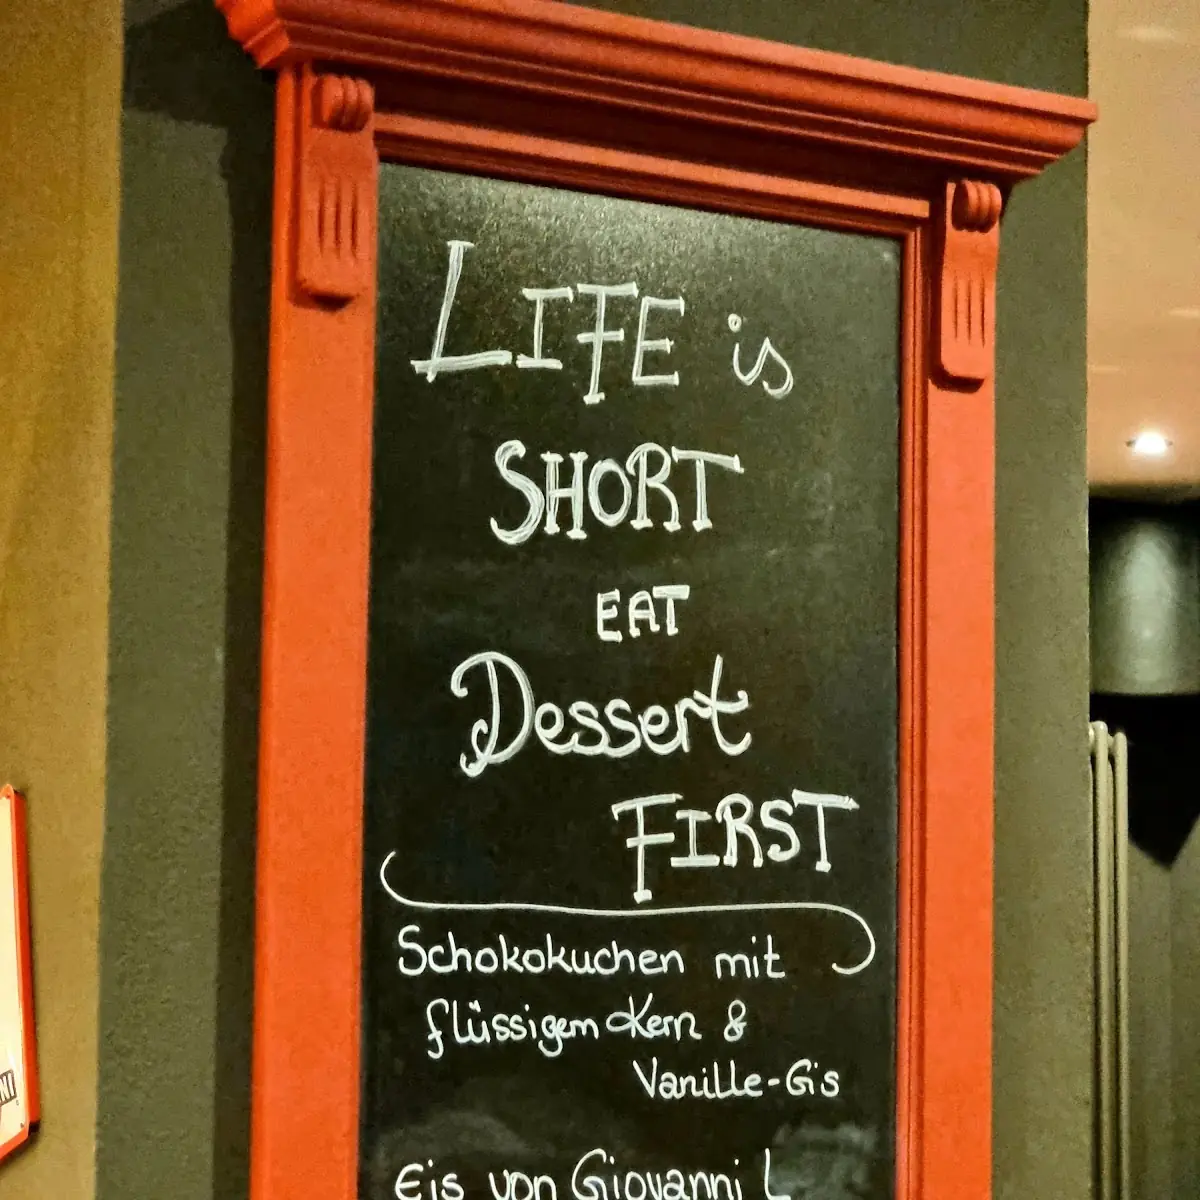 LIFE is
SHORT
EAT
Dessert
FIRST
Schokokuchen mit
flüssigem Kern &
Vanille-Eis
Eis von Giovanni L